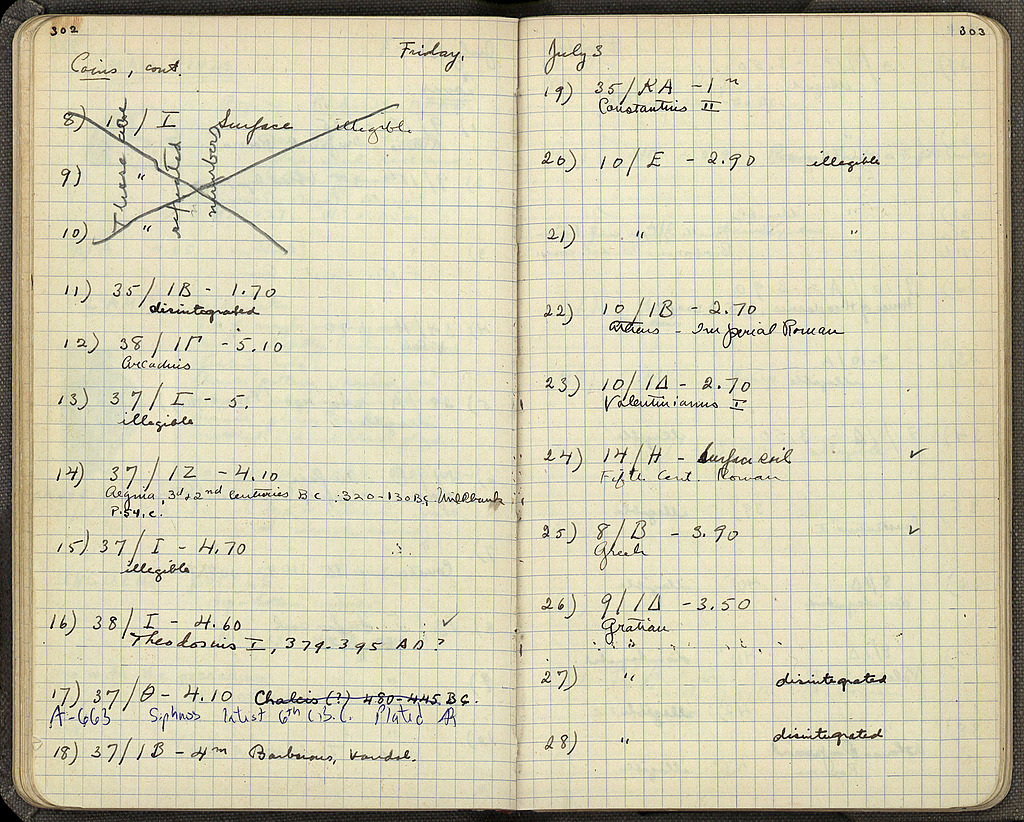 302
Friday,
Coins, cont.
8) 10/I Surface illegible
These are
repeated
numbers
9) "
10) "
11) 35/ΙΒ - 1.70
disintegrated
12) 38/ΙΓ - 5.10
Arcadius
13) 37/I - 5.
illegible
14) 37/ΙΖ - 4.10
Aegina, 3d, 2nd Centuries B C. 320-130 BC,
P.54, c.
15) 37/I - 4.70
illegible
16) 38/I - 4.60 ✓
Theodosius I, 379-395 AD?
17) 37/Θ - 4.10 Chalcis (?) 480-445 BC.
A-663 Siphnos latest 6th C. B.C. Plated AR
18) 37/ΙΒ - 4m Barbarous, Vandal.
303
July 3
19) 35/ΚΑ - 1m
Constantius II
20) 10/Ε - 2.90 illegible
21) " "
22) 10/ΙΒ - 2.70
Athens - Imperial Roman
23) 10/ΙΔ - 2.70
Valentinianus I
24) 14/Η - Surface soil ✓
Fifth Cent. Roman
25) 8/Β - 3.90 ✓
Greek
26) 9/ΙΔ - 3.50
Gratian
27) " disintegrated
28) " disintegrated